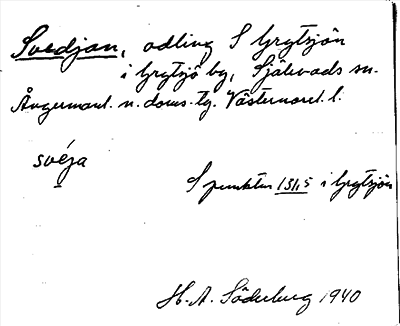 Svedjan, odling S Grytsjön
i Grytsjö by, Själevads sn.
Ångermanl. n. doms.tg. Västernorrl. l.
svéja
S punkten 131,5 i Grytsjön
H. A. Söderberg 1940